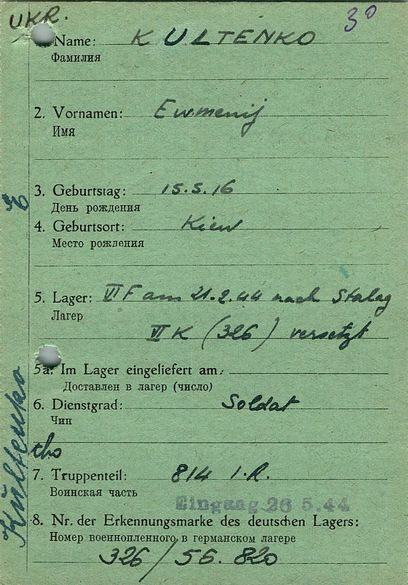 UKR.
30
Name: KULTENKO
Фамилия
2. Vornamen: Ewmenij
Имя
3. Geburtstag: 15.5.16
День рождения
4. Geburtsort: Kiew
Место рождения
5. Lager: VI F am 21.2.44 nach Stalag
Лагер
VI K (326) versetzt
5a. Im Lager eingeliefert am:
Доставлен в лагер (число)
6. Dienstgrad: Soldat
Чин
7. Truppenteil: 814 I.R.
Воинская часть
Eingang 26 5.44
8. Nr. der Erkennungsmarke des deutschen Lagers:
Номер военнопленного в германском лагере
326/56.820
Kultenko E